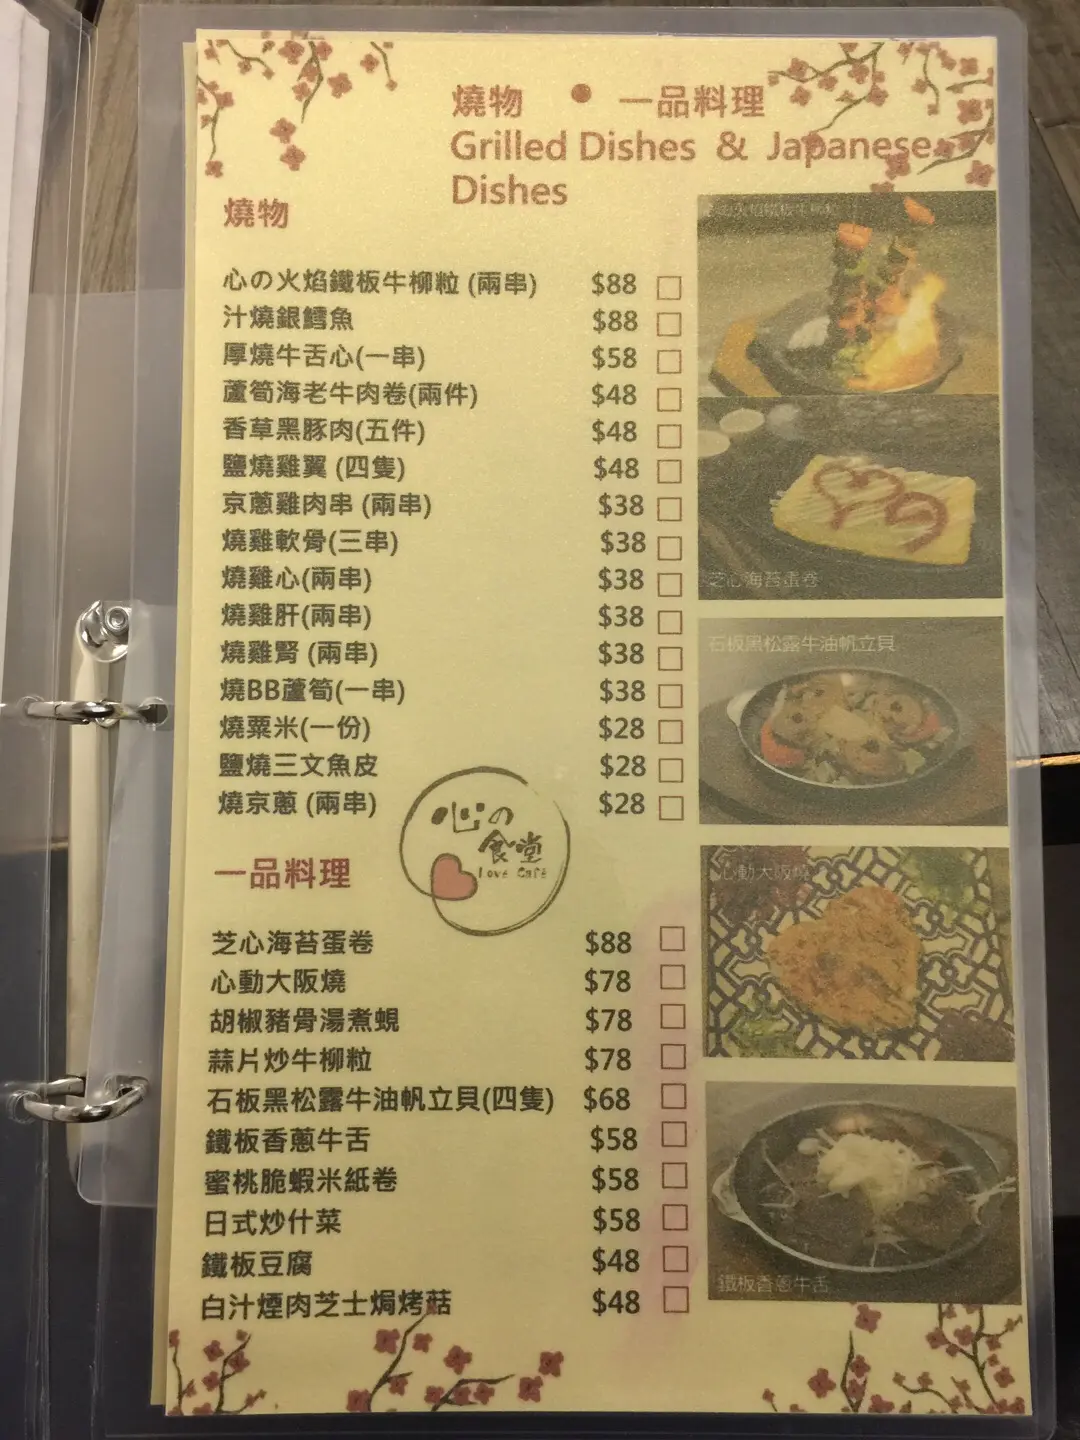 燒物 • 一品料理
Grilled Dishes & Japanese
Dishes
燒物
心の火焰鐵板牛柳粒 (兩串) $88 □
汁燒銀鱈魚 $88 □
厚燒牛舌心(一串) $58 □
蘆筍海老牛肉卷(兩件) $48 □
香草黑豚肉(五件) $48 □
鹽燒雞翼 (四隻) $48 □
京蔥雞肉串 (兩串) $38 □
燒雞軟骨(三串) $38 □
燒雞心(兩串) $38 □
燒雞肝(兩串) $38 □
燒雞腎 (兩串) $38 □
燒BB蘆筍(一串) $38 □
燒粟米(一份) $28 □
鹽燒三文魚皮 $28 □
燒京蔥 (兩串) $28 □
心の
食堂
Love Café
一品料理
芝心海苔蛋卷 $88 □
心動大阪燒 $78 □
胡椒豬骨湯煮蜆 $78 □
蒜片炒牛柳粒 $78 □
石板黑松露牛油帆立貝(四隻) $68 □
鐵板香蔥牛舌 $58 □
蜜桃脆蝦米紙卷 $58 □
日式炒什菜 $58 □
鐵板豆腐 $48 □
白汁煙肉芝士焗烤菇 $48 □
芝心海苔蛋卷
石板黑松露牛油帆立貝
心動大阪燒
鐵板香蔥牛舌